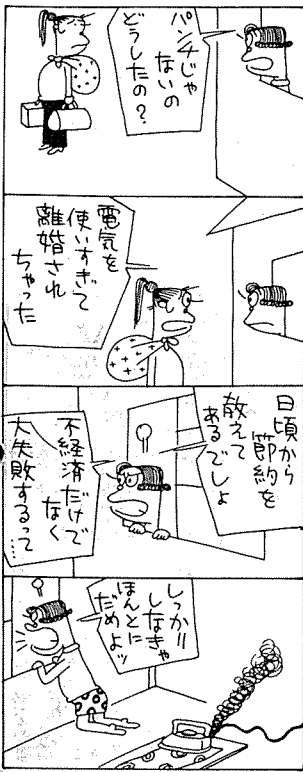 パンチじゃ
ないの
どうしたの？
電気を
使いすぎて
離婚され
ちゃった
日頃から
節約を
教えて
あるでしょ
不経済だけで
なく
大失敗するって…
しっかり
しなきゃ
ほんとに
だめよッ